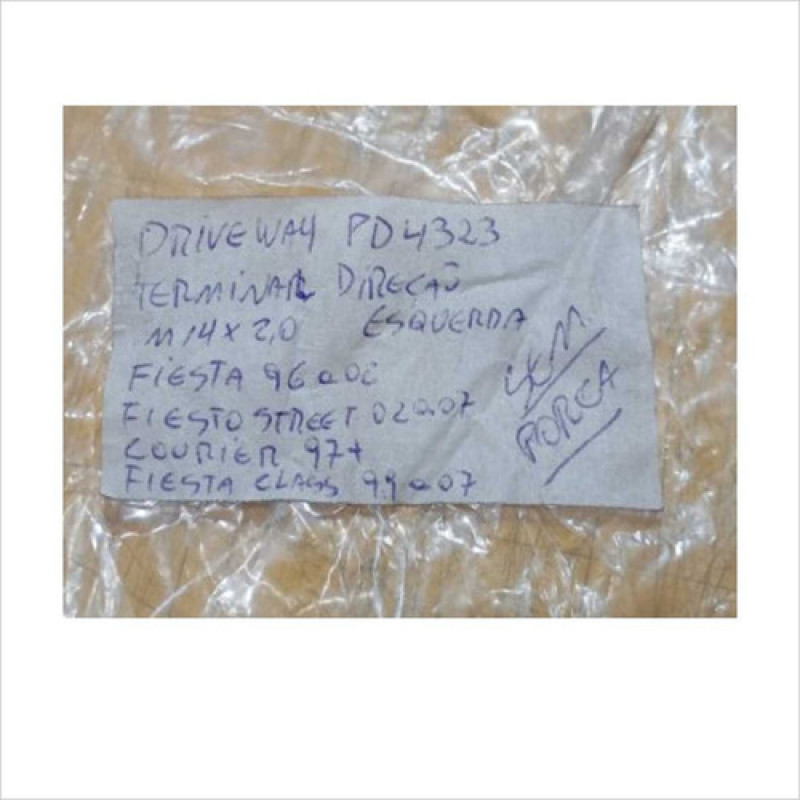 DRIVEWAY PD4323
TERMINAL DIREÇÃO
M14X2,0 ESQUERDA
FIESTA 96a02
FIESTO STREET 02a07
COURIER 97+
FIESTA CLASS 99a07
SEM
PORCA